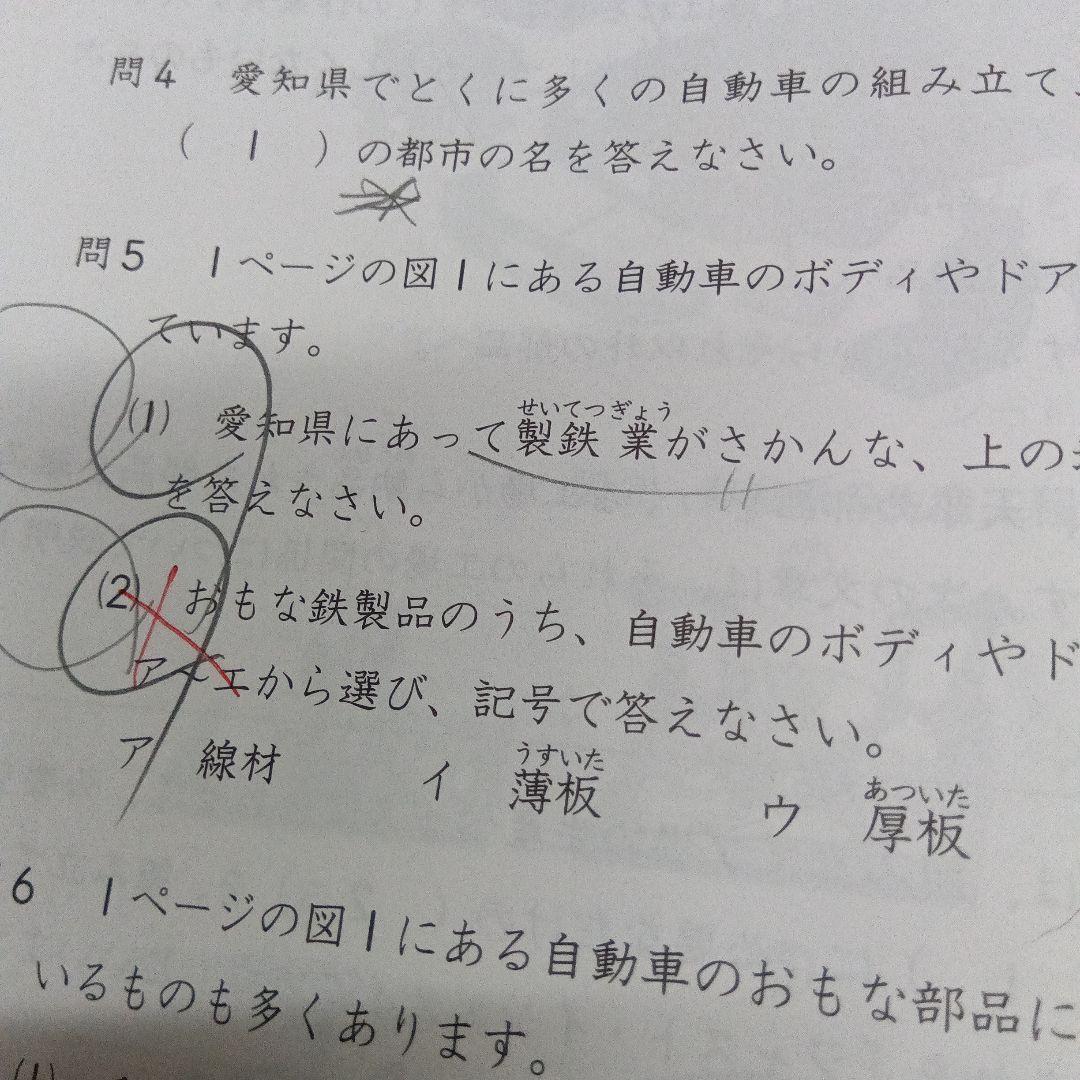 問4 愛知県でとくに多くの自動車の組み立て
( 1 )の都市の名を答えなさい。
問5 1ページの図1にある自動車のボディやドア
ています。
(1) 愛知県にあって製鉄業がさかんな、上の
せいてつぎょう
を答えなさい。
(2) おもな鉄製品のうち、自動車のボディやド
ア〜エから選び、記号で答えなさい。
ア 線材 イ 薄板 ウ 厚板
うすいた あついた
6 1ページの図1にある自動車のおもな部品に
いるものも多くあります。
(1)